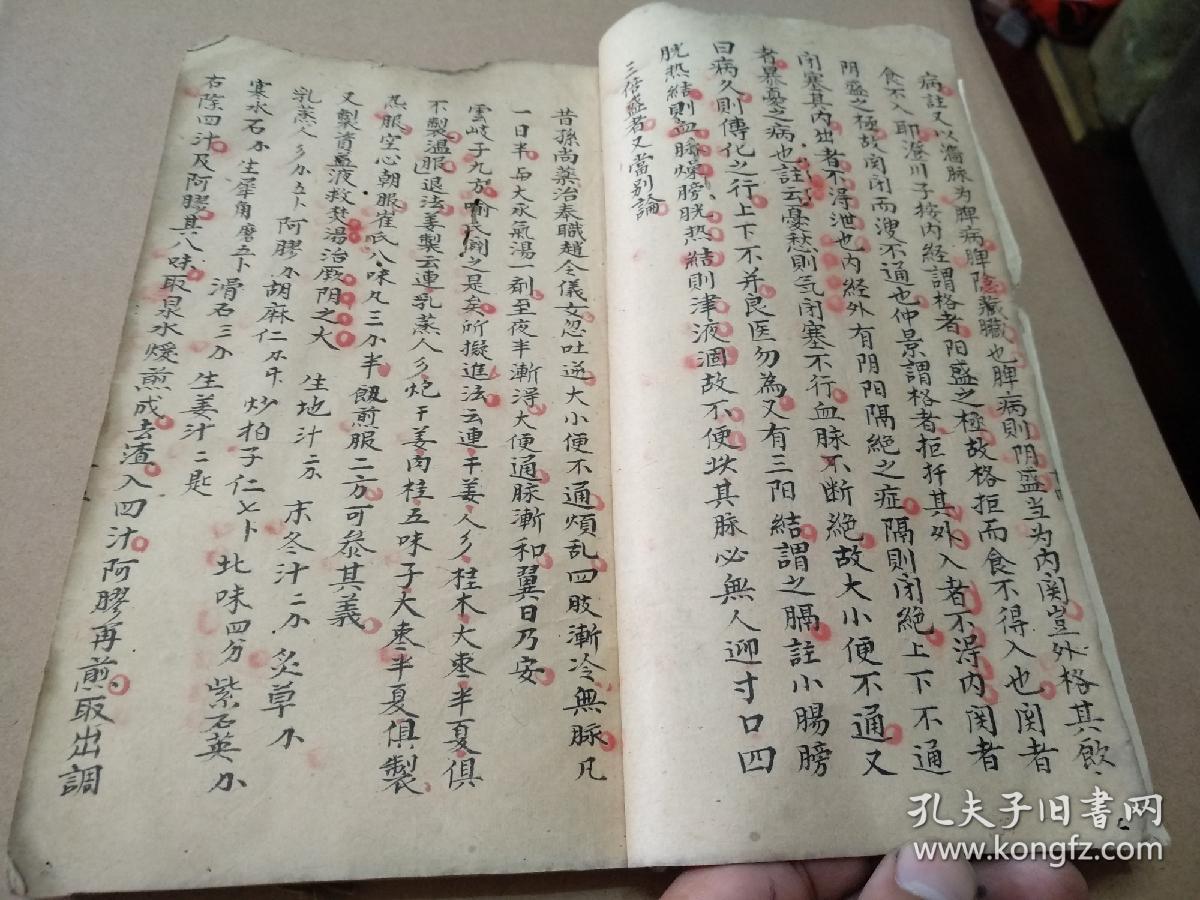 病註又以濇脉为脾病脾陰藏臓也脾病則阴盛当为内関豈外格其飲
食不入耶澄川子按内経謂格者阳盛之極故格拒而食不得入也関者
阴盛之極故関闭而溲不通也仲景謂格者拒扞其外入者不得内関者
闭塞其内出者不得泄也内経外有阴阳隔絶之症隔則闭絶上下不通
者暴憂之病也註云憂愁則気闭塞不行血脉不断絶故大小便不通又
曰病久則傳化之行上下不并良医勿為又有三阳結謂之膈註小腸膀
胱热結則血脉燥膀胱热結則津液涸故不便坎其脉必無人迎寸口四
三倍盛者又當别論
昔孫尚薬治奉職趙令儀女忽吐逆大小便不通煩乱四肢漸冷無脉凡
一日半与大承氣湯一剤至夜半漸淂大便通脉漸和翼日乃安
雲岐子九方喻氏闢之是矣所擬進法云連干姜人彡桂木大枣半夏俱
不製温服退法姜製云連乳蒸人彡炮干姜肉桂五味子大枣半夏俱製
热服空心朝服崔氏八味丸三小半飯煎服二方可叅其義
又製資益液救焚湯治厥阴之大
生地汁二刄 末冬汁二刄 炙草小
乳蒸人彡小五卜 阿膠小 胡麻仁小牛 炒柏子仁七卜 北味四分 紫石英小
寒水石小 生犀角磨五卜 滑石三小 生姜汁二匙
右除四汁及阿膠其八味取泉水煖煎成去渣入四汁阿膠再煎取出調
孔夫子旧书网
www.kongfz.com